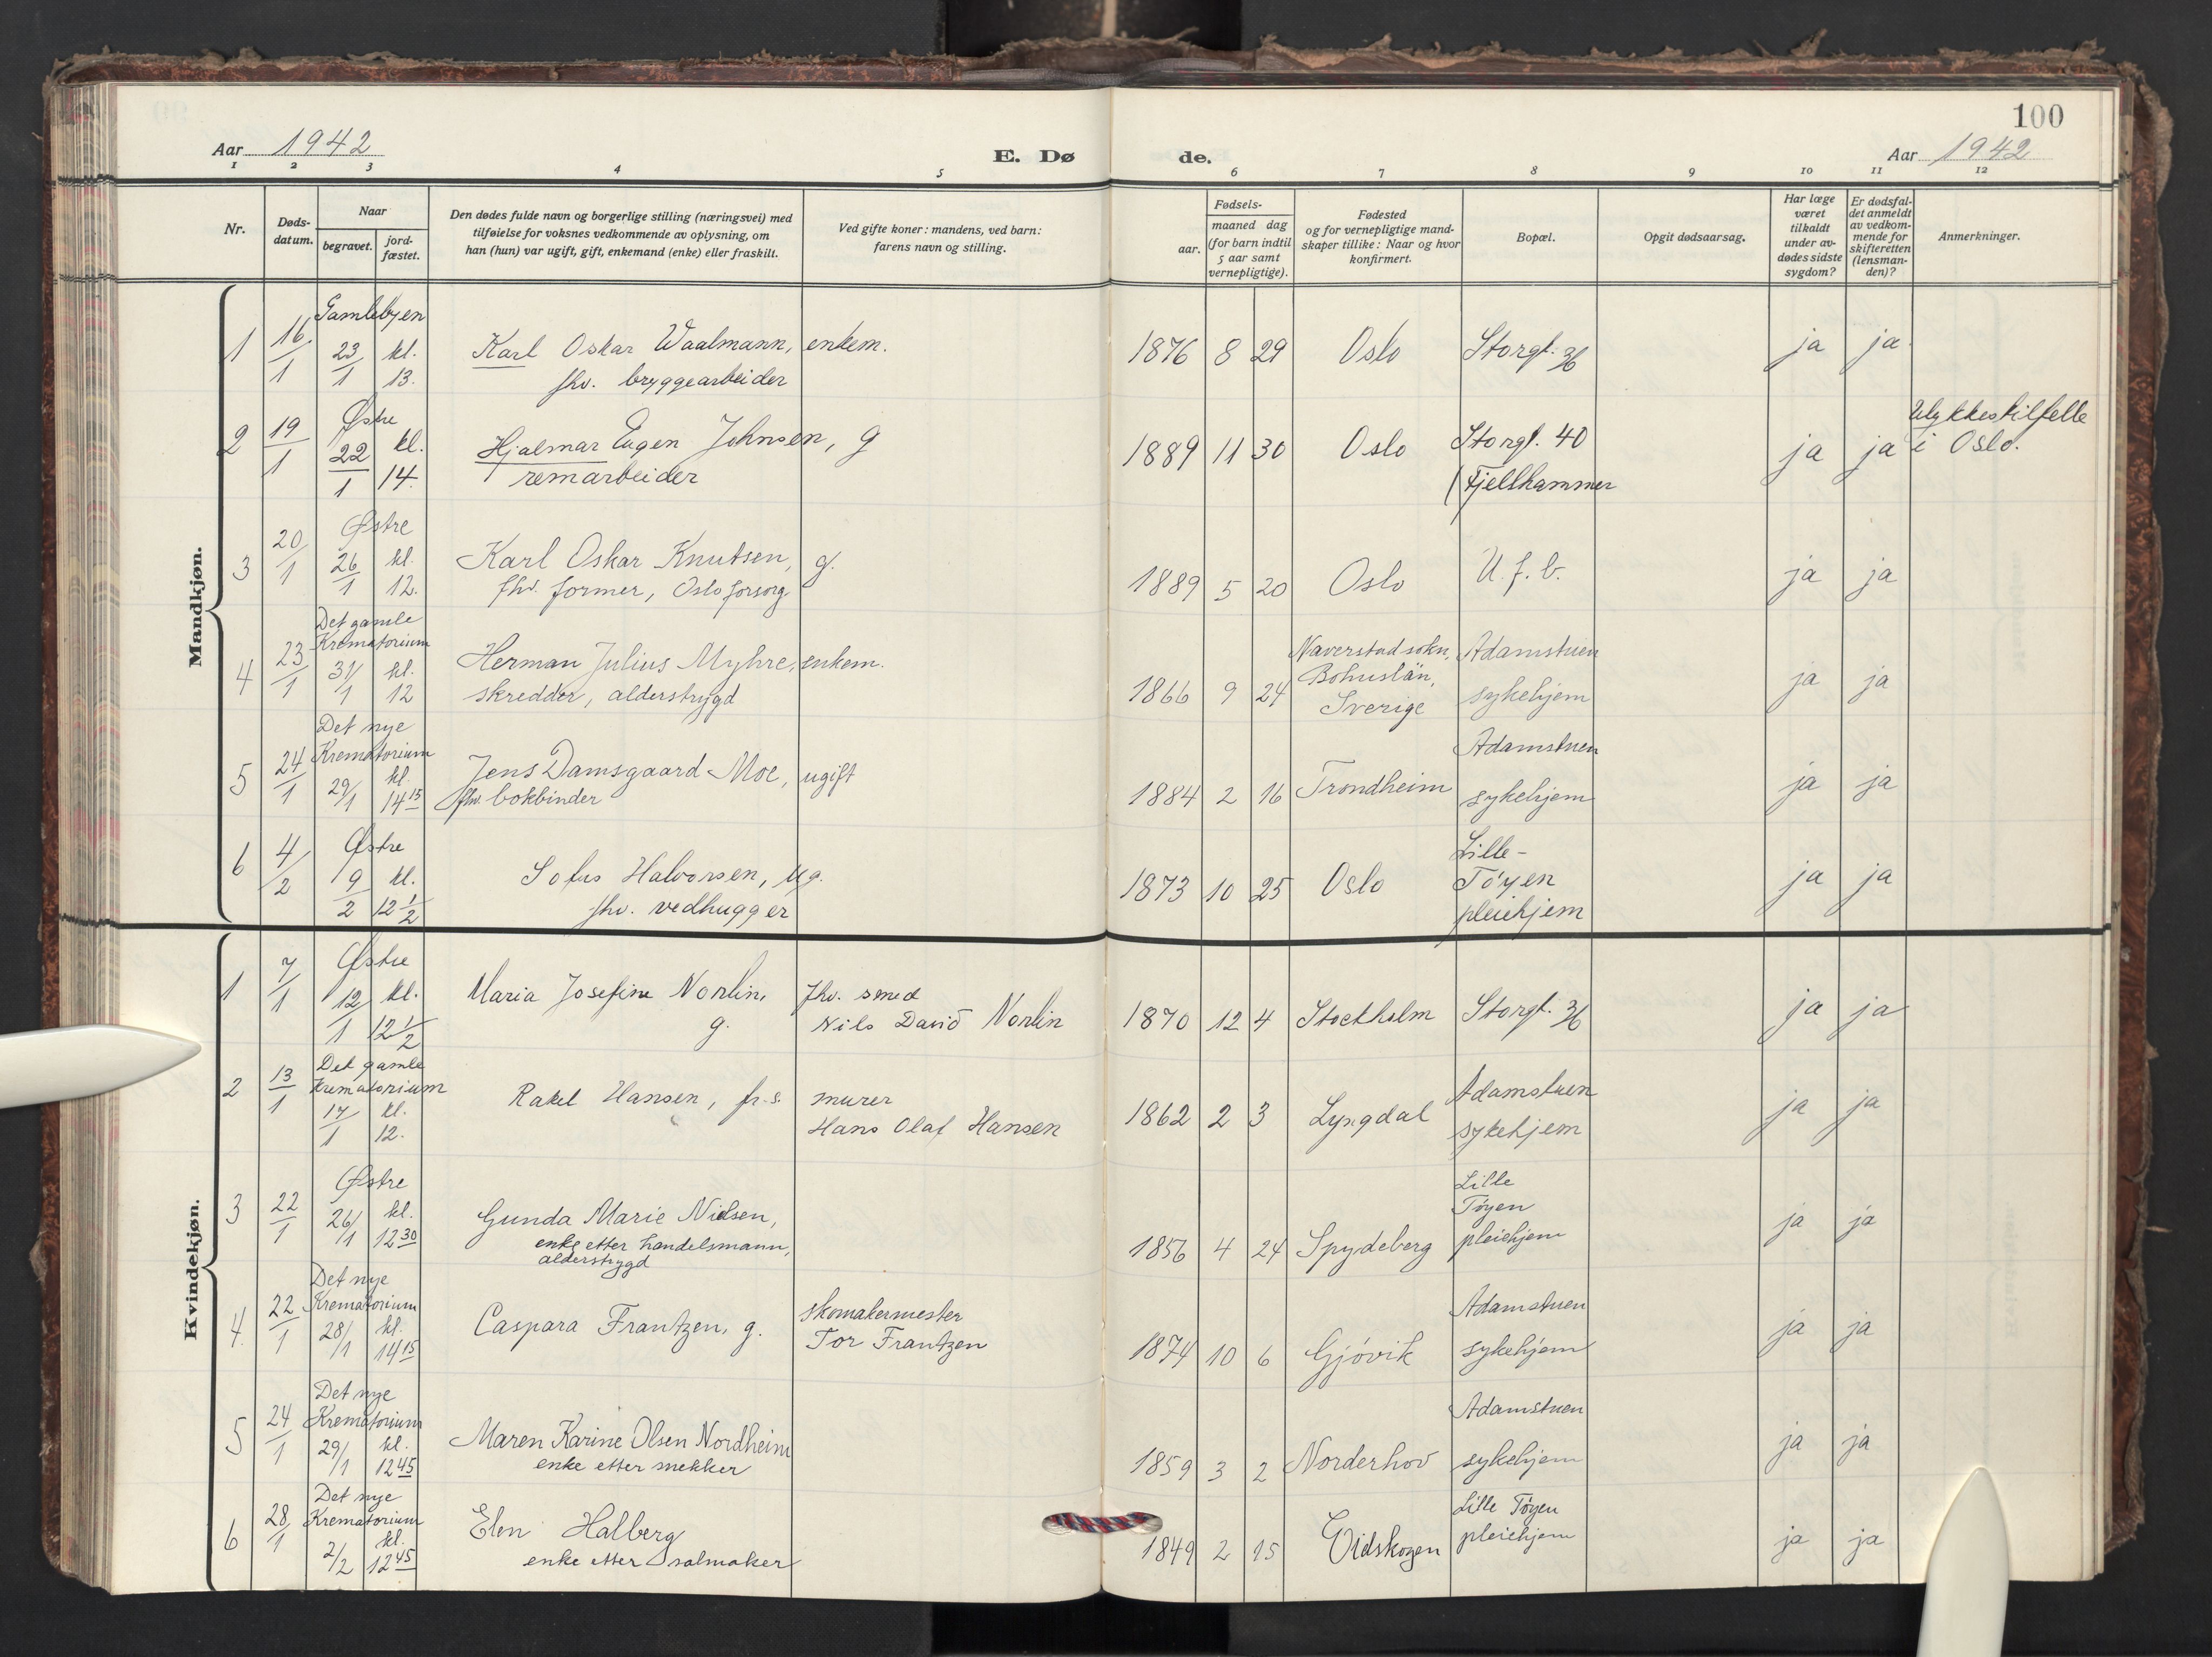 100
Aar 1942
E. Dø
de.
Aar 1942
1 2 3 4 5 6 7 8 9 10 11 12
Nr.
Døds-
datum.
Naar
begravet.
jord-
fæstet.
Den dødes fulde navn og borgerlige stilling (næringsvei) med
tilføielse for voksnes vedkommende av oplysning, om
han (hun) var ugift, gift, enkemand (enke) eller fraskilt.
Ved gifte koner: mandens, ved barn:
farens navn og stilling.
Fødsels-
aar.
maaned dag
(for barn indtil
5 aar samt
vernepligtige).
Fødested
og for vernepligtige mand-
skaper tillike: Naar og hvor
konfirmert.
Bopæl.
Opgit dødsaarsag.
Har læge
været
tilkaldt
under av-
dødes sidste
sygdom?
Er dødsfal-
det anmeldt
av vedkom-
mende for
skifteretten
(lensman-
den)?
Anmerkninger.
Mandkjøn.
Gamlebyen
1 16/1 23/1 kl. 13. Karl Oskar Waalmann, enkem. 1876 8 29 Oslo Storgt. 36 ja ja
fhv. bryggearbeider
Østre
2 19/1 22/1 kl. 14. Hjalmar Eugen Johnsen, g 1889 11 30 Oslo Storgt. 40 ja ja Ulykkestilfelle
i Oslo.
remarbeider
(Fjellhammer
Østre
3 20/1 26/1 kl. 12. Karl Oskar Knutsen, g. 1889 5 20 Oslo U. f. b. ja ja
fhv. former, Oslo forsorg
Det gamle
Krematorium
4 23/1 31/1 kl. 12 Herman Julius Myhre, enkem. 1866 9 24 Naverstad sokn, Adamstuen ja ja
Bohuslän,
skredder, alderstrygd Sverige sykehjem
Det nye
Krematorium
5 24/1 29/1 kl. 14 15 Jens Damsgaard Moe, ugift 1884 2 16 Trondheim Adamstuen ja ja
fhv. bokbinder sykehjem
Østre
6 4/2 9/2 kl. 12 1/2 Sofus Halvorsen, ug. 1873 10 25 Oslo Lille-
Töyen ja ja
fhv. vedhugger pleiehjem
Kvindekjøn.
Østre
1 7/1 12/1 kl. 12 1/2 Maria Josefine Norlin, g. fhv. smed
Nils David Norlin 1870 12 4 Stockholm Storgt. 36 ja ja
Det gamle
Krematorium
2 13/1 17/1 kl. 12. Rakel Hansen, fr. s. murer
Hans Olaf Hansen 1862 2 3 Lyngdal Adamstuen
sykehjem ja ja
Østre
3 22/1 26/1 kl. 12 30 Gunda Marie Nielsen,
enke etter handelsmann,
alderstrygd 1856 4 24 Spydeberg Lille
Töyen
pleiehjem ja ja
Det nye
Krematorium
4. 22/1 28/1 kl. 14 15 Caspara Frantzen, g. skomakermester
Tor Frantzen 1874 10 6 Gjövik Adamstuen
sykehjem ja ja
Det nye
Krematorium
5 24/1 29/1 kl. 12 45 Maren Karine Olsen Nordheim
enke etter snekker 1859 3 2 Norderhov Adamstuen
sykehjem ja ja
Det nye
Krematorium
6 28/1 2/2 kl. 12 45 Elen Halberg
enke etter salmaker 1849 2 15 Eidskogen Lille Töyen
pleiehjem ja ja